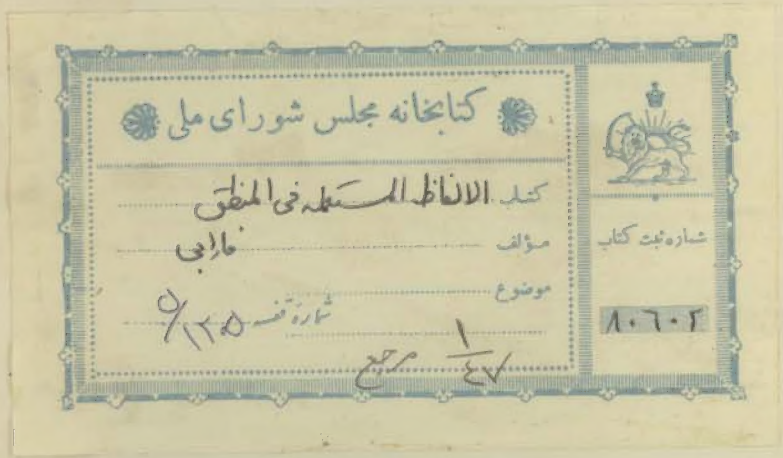 كتابخانه مجلس شورای ملی
كتاب الالفاظ المستعمله فی المنطق
مؤلف فارابی
موضوع
شماره قفسه ۵/۱۳۰۵
۱/۴۷ مرجع
شماره ثبت كتاب
۸۰۶۰۲